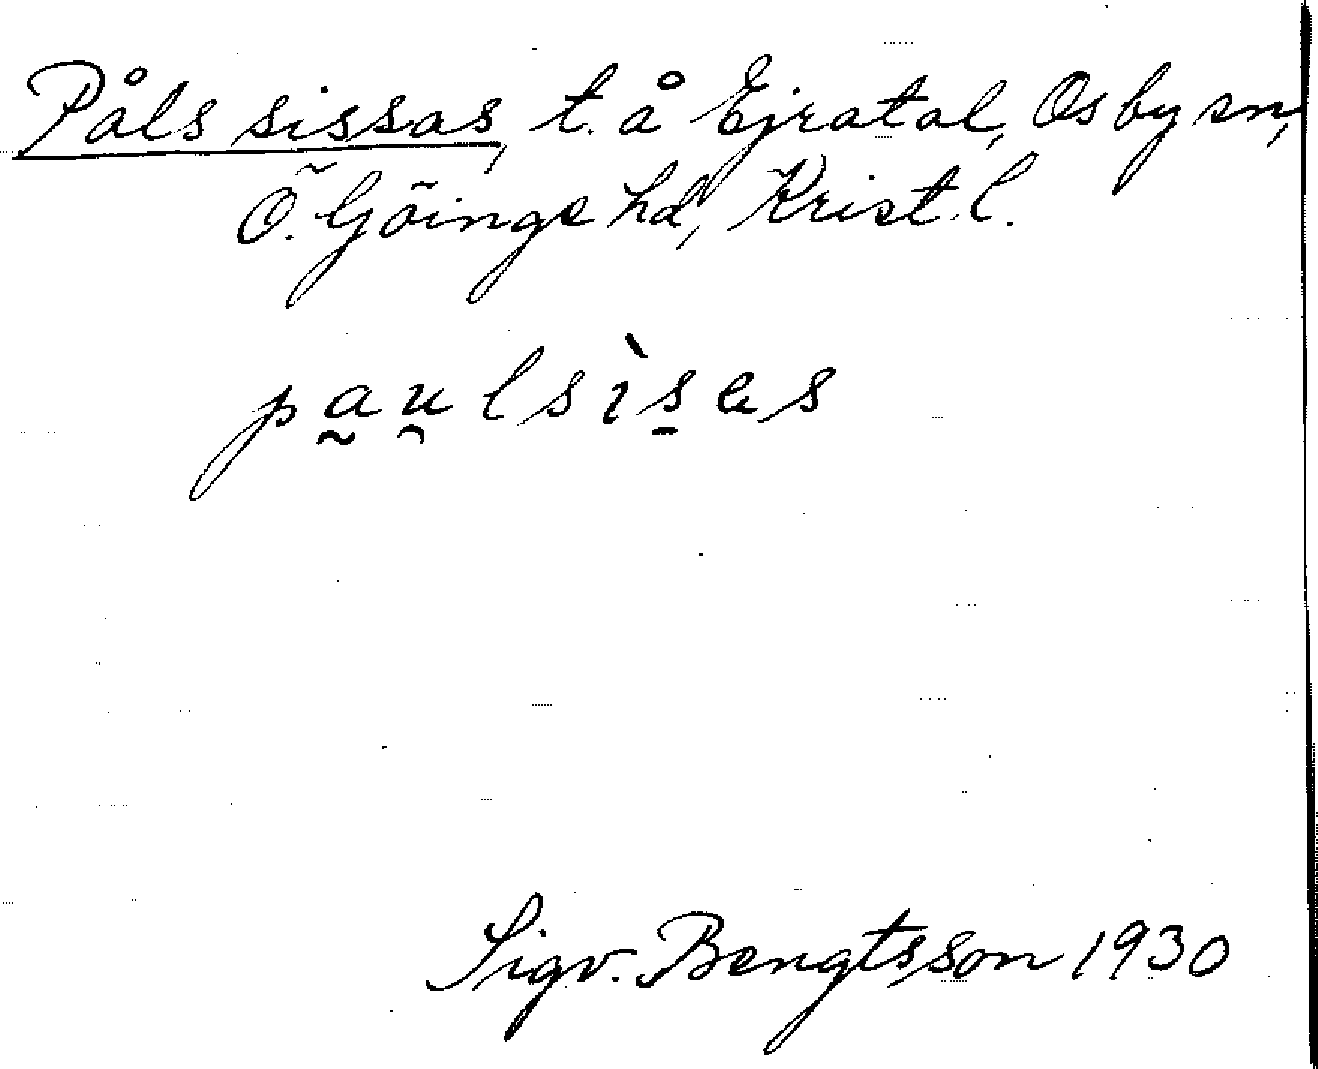 Påls sissas, t. å Ejratal, Osby sn,
Ö. Göinge hd, Krist. l.
pa̰u̯lsìs̱as
Sigv. Bengtsson 1930